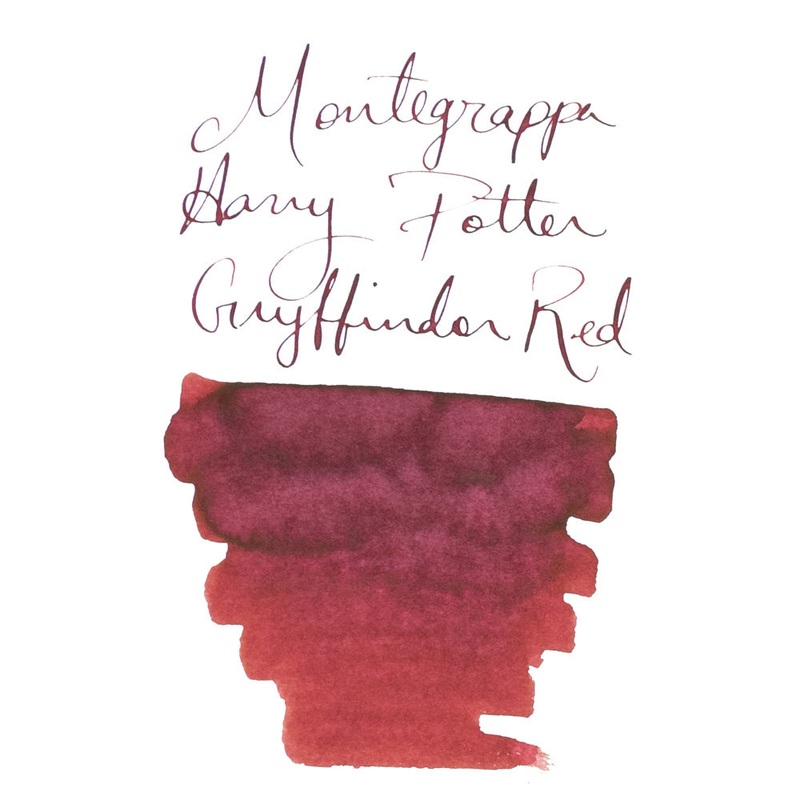 Montegrappa
Harry Potter
Gryffindor Red